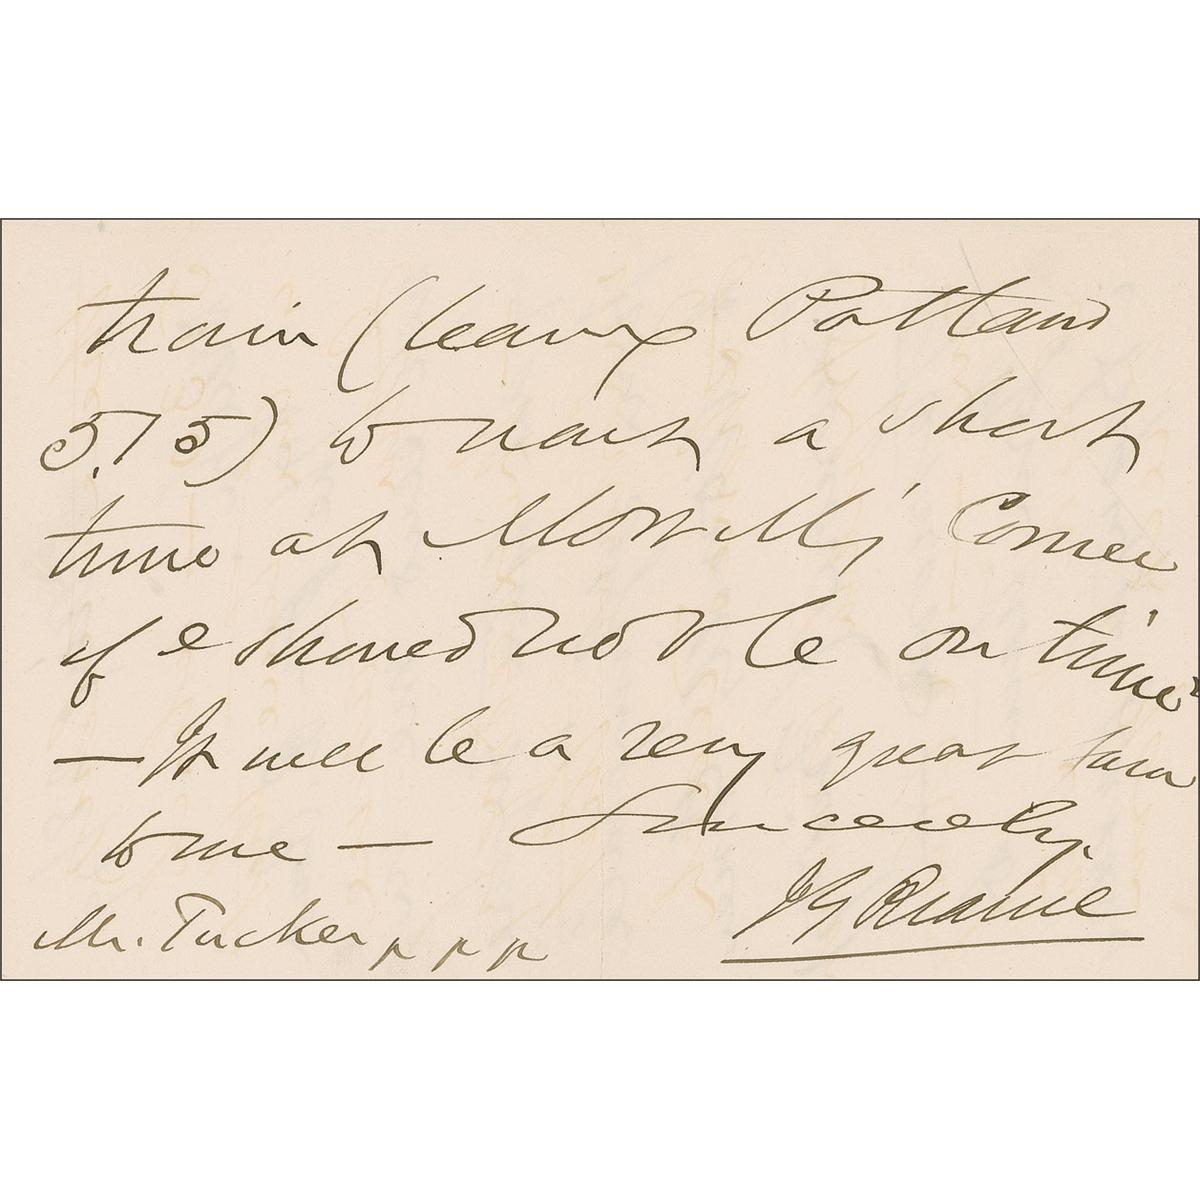 train (leaving Portland
5.15) to wait a short
time at Morrill's Corner
if we should not be on time
— It will be a very great favor
to me — Sincerely,
J G Blaine
Mr. Tucker